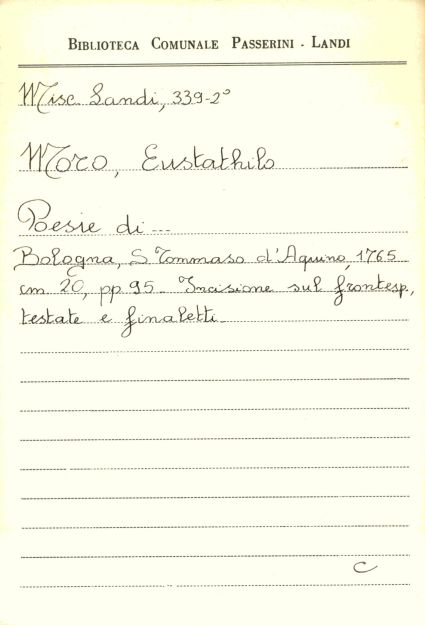 BIBLIOTECA COMUNALE PASSERINI - LANDI
Misc. Landi, 339-2°
Moro, Eustathilo
Poesie di ---
Bologna, S. Tommaso d'Aquino, 1765
cm. 20, pp. 95 - Incisione sul frontesp.,
testate e finaletti -
C